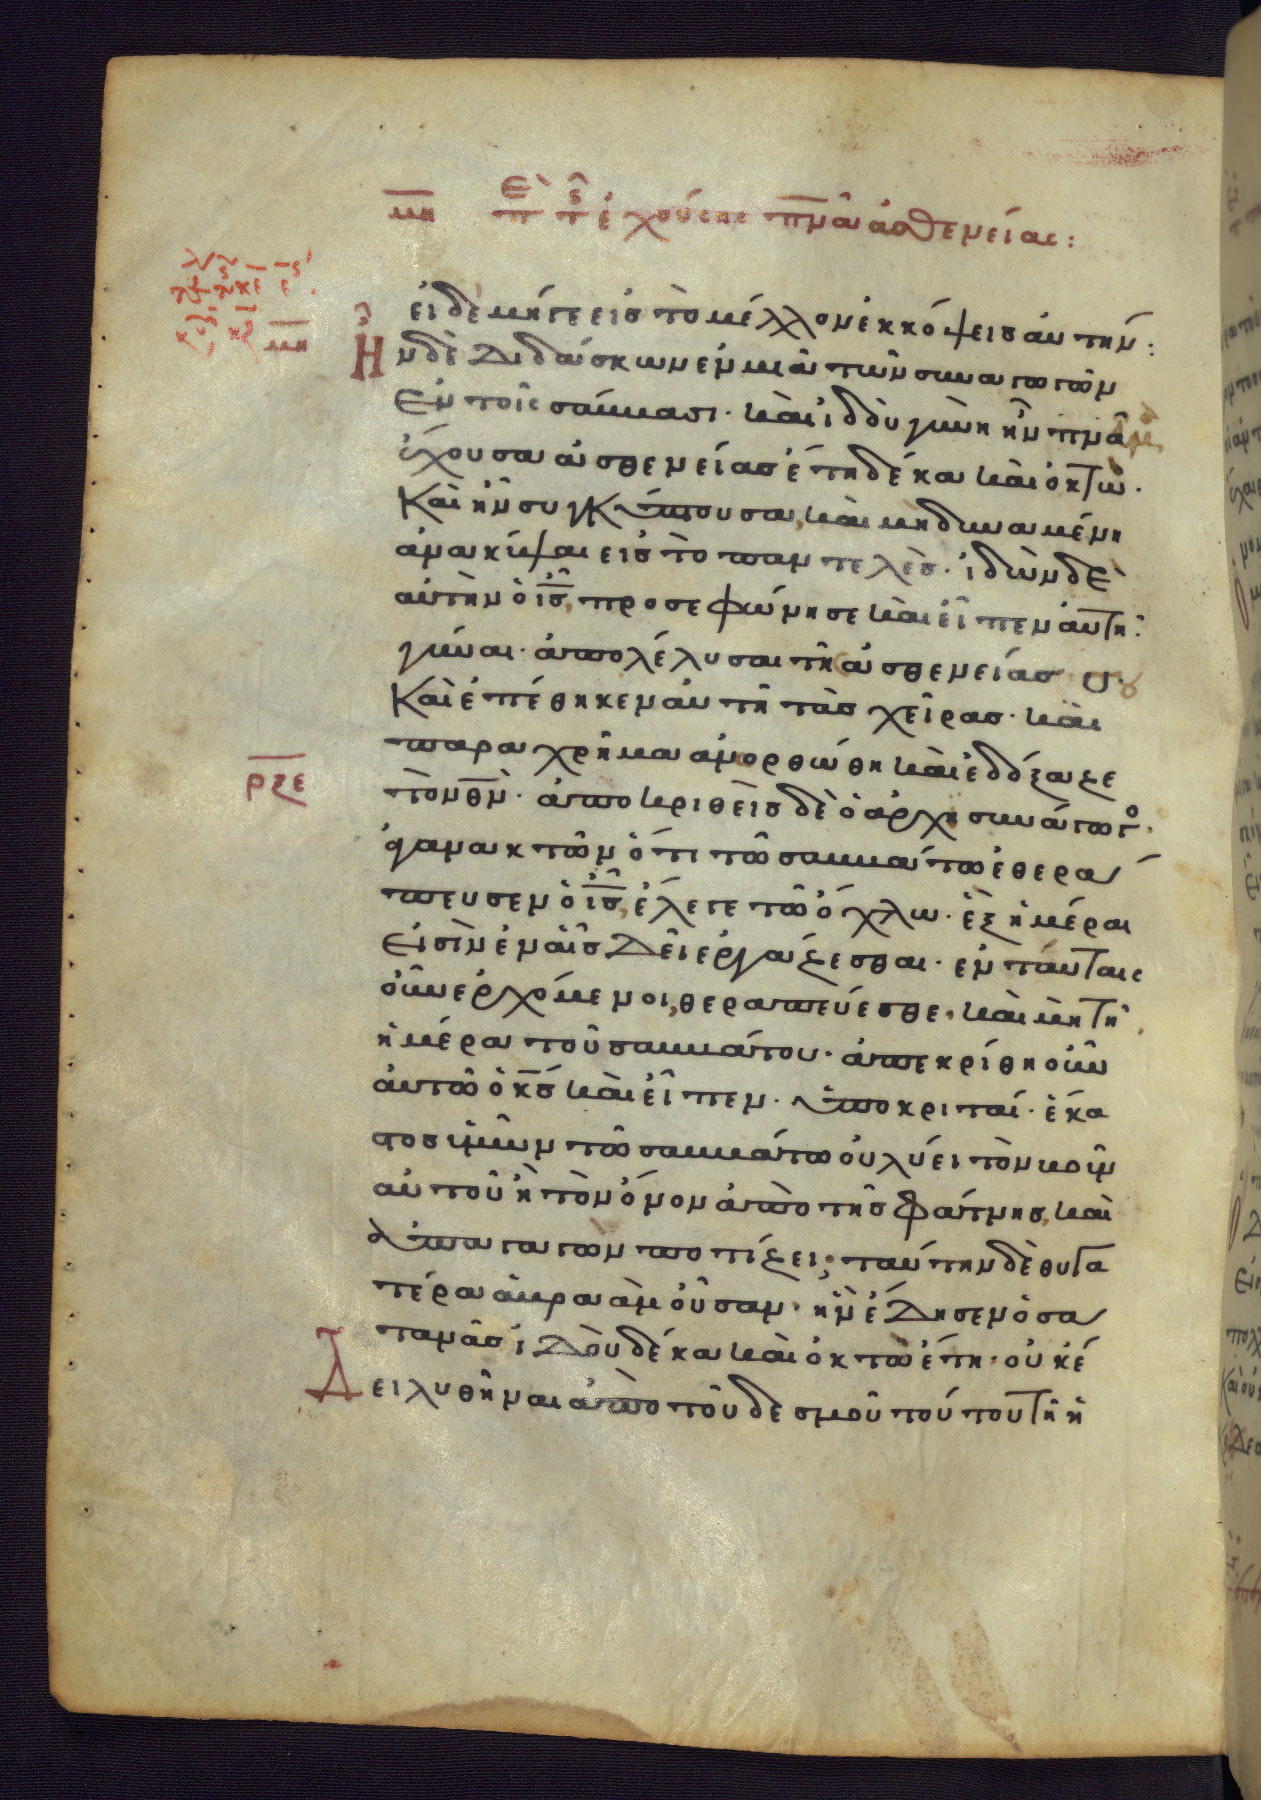 μη περὶ τῆς ἐχούσης πνᾶ ἀσθενείας:
εἰδεμήγε εἰς τὸ μέλλον ἐκκόψεις αὐτήν:
Ἦν δὲ διδάσκων ἐν μιᾶ τῶν συναγωγῶν
ἐν τοῖς σάββασι· καὶ ἰδοὺ γυνὴ ἦν πνᾶ
ἔχουσα ἀσθενείας ἔτη δέκα καὶ ὀκτώ·
καὶ ἦν συγκύπτουσα, καὶ μὴ δυναμένη
ἀνακύψαι εἰς τὸ παντελές· ἰδὼν δὲ
αὐτὴν ὁ ις, προσεφώνησε καὶ εἶπεν αὐτῆ·
γύναι· ἀπολέλυσαι τῆς ἀσθενείας σου·
καὶ ἐπέθηκεν αὐτῆ τὰς χεῖρας· καὶ
παραχρῆμα ἀνορθώθη καὶ ἐδόξαζε
ρξε
τὸν θν· ἀποκριθεὶς δὲ ὁ ἀρχησυνάγωγο·
ἀγανακτῶν ὅτι τῶ σαββάτω ἐθερά
πευσεν ὁ ις, ἔλεγε τῶ ὄχλω· ἓξ ἡμέραι
εἰσὶν ἐν αἷς δεῖ ἐργάζεσθαι· ἐν ταύταις
οὖν ἐρχόμενοι, θεραπεύεσθε· καὶ μὴ τῆ
ἡμέρα τοῦ σαββάτου· ἀπεκρίθη οὖν
αὐτῶ ὁ κς καὶ εἶπεν· ὑποκριταί· ἕκα
στος ὑμῶν τῶ σαββάτω οὐ λύει τὸν βοῦν
αὐτοῦ ἢ τὸν ὄνον ἀπὸ τῆς φάτνης, καὶ
ἀπαγαγὼν ποτίζει; ταύτην δὲ θυγα
τέρα ἀβραὰμ οὖσαν· ἣν ἔδησεν ὁ σα
τανᾶς ἰδοὺ δέκα καὶ ὀκτὼ ἔτη· οὐκ ἔ
δει λυθῆναι ἀπὸ τοῦ δεσμοῦ τούτου τῆ ἡ